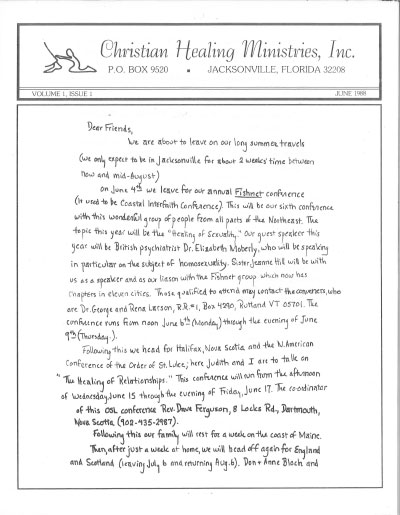 Christian Healing Ministries, Inc.
P.O. BOX 9520 • JACKSONVILLE, FLORIDA 32208
VOLUME 1, ISSUE 1 JUNE 1988
Dear Friends,
We are about to leave on our long summer travels
(we only expect to be in Jacksonville for about 2 weeks' time between
now and mid-August)
on June 4th we leave for our annual Fishnet conference
(it used to be Coastal Interfaith Conference). This will be our sixth conference
with this wonderful group of people from all parts of the Northeast. The
topic this year will be the "Healing of Sexuality." Our guest speaker this
year will be British psychiatrist Dr. Elizabeth Moberly, who will be speaking
in particular on the subject of homosexuality. Sister Jeanne Hill will be with
us as a speaker and as our liason with the Fishnet group which now has
chapters in eleven cities. Those qualified to attend may contact the conveners, who
are Dr. George and Rena Larson, R.R.#1, Box 4290, Rutland VT 05701. The
conference runs from noon June 6th (Monday) through the evening of June
9th (Thursday.).
Following this we head for Halifax, Nova Scotia, and the N. American
Conference of the Order of St. Luke; here Judith and I are to talk on
"The Healing of Relationships." This conference will run from the afternoon
of Wednesday, June 15 through the evening of Friday, June 17. The co-ordinator
of this OSL conference Rev. Dave Ferguson, 8 Locks Rd., Dartmouth,
Nova Scotia (902-435-2987).
Following this our family will rest for a week on the coast of Maine.
Then, after just a week at home, we will head off again for England
and Scotland (leaving July 6 and returning Aug. 6). Don + Anne Bloch and